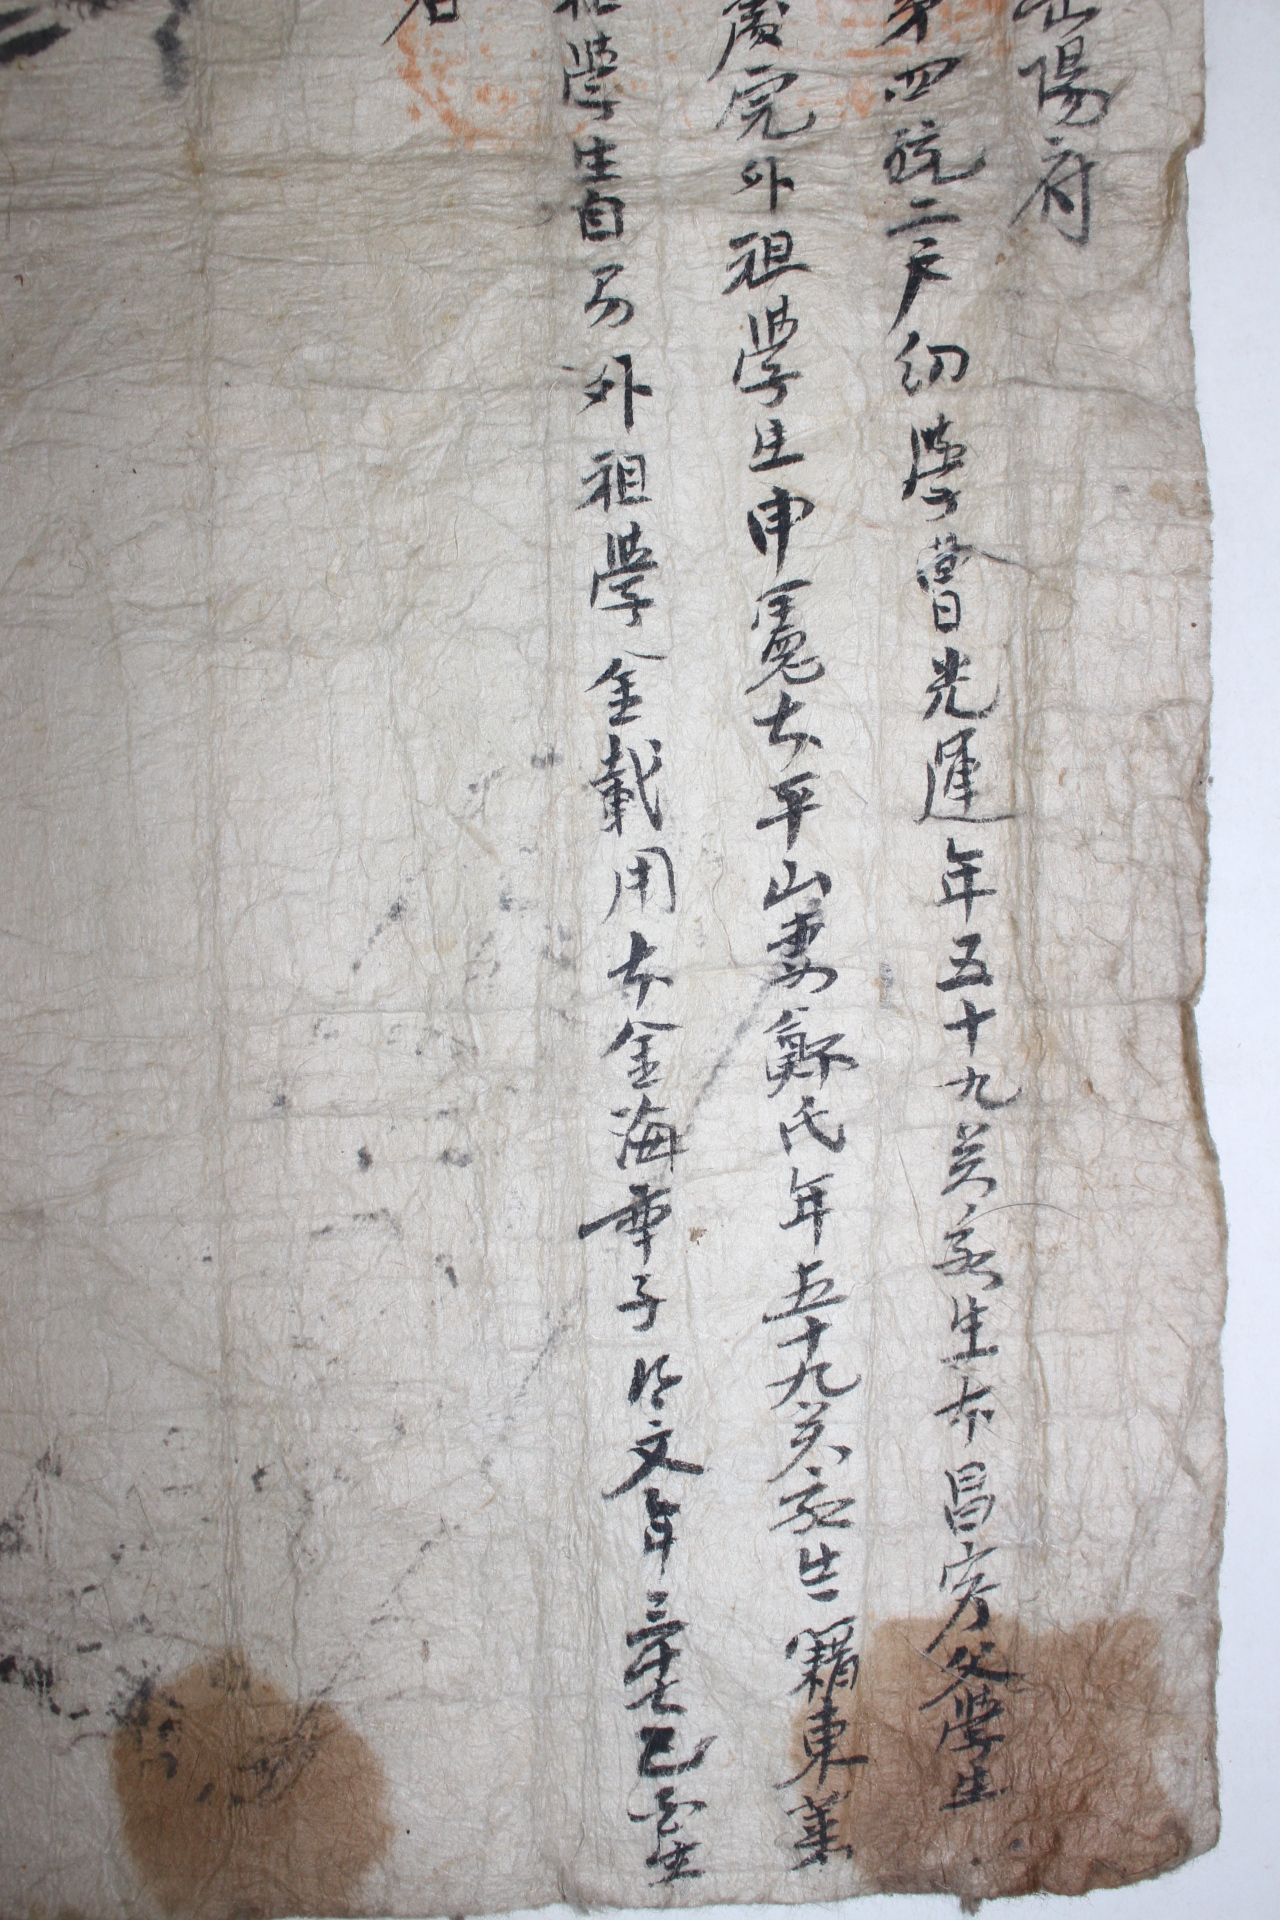 陽府
第四統二戶幼學曺光運年五十九癸亥生本昌寧父學生
慶完外祖學生申冕本平山妻鄭氏年五十九癸亥生籍東萊
學生自 外祖學金載用本金海率子 文年三十七乙酉生